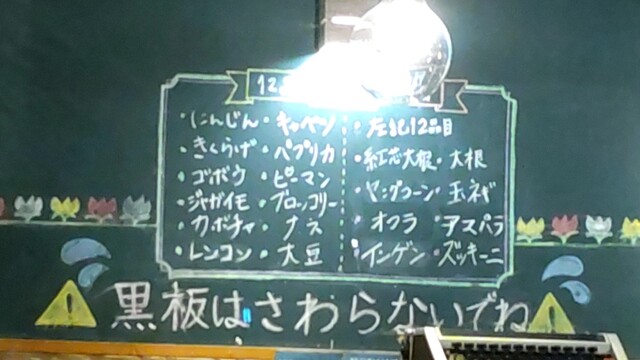 12
・にんじん・キャベツ
・きくらげ・パプリカ
・ゴボウ・ピーマン
・ジャガイモ・ブロッコリー
・カボチャ・ナス
・レンコン・大豆
・左記12品目
・紅芯大根・大根
・ヤングコーン・玉ネギ
・オクラ・アスパラ
・インゲン・ズッキーニ
黒板はさわらないでね